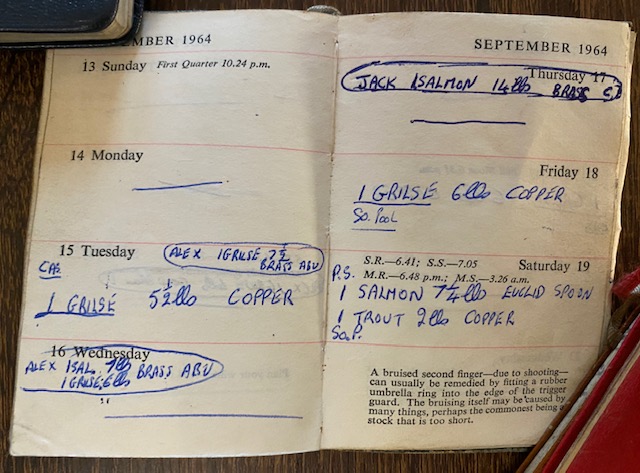 EMBER 1964
13 Sunday First Quarter 10.24 p.m.
14 Monday
15 Tuesday
ALEX 1 GRILSE 7½
BRASS ABU
1 GRILSE 5½ lbs COPPER
16 Wednesday
ALEX 1 SAL. 7lbs BRASS ABU
1 GRILSE 6lbs
SEPTEMBER 1964
Thursday 17
JACK 1 SALMON 14 lbs BRASS C.
Friday 18
1 GRILSE 6 lbs COPPER
So. Pool
S.R.—6.41; S.S.—7.05 Saturday 19
P.S. M.R.—6.48 p.m.; M.S.—3.26 a.m.
1 SALMON 7¼ lbs EUCLID SPOON
1 TROUT 2 lbs COPPER
So.P.
A bruised second finger—due to shooting—
can usually be remedied by fitting a rubber
umbrella ring into the edge of the trigger
guard. The bruising itself may be caused by
many things, perhaps the commonest being a
stock that is too short.